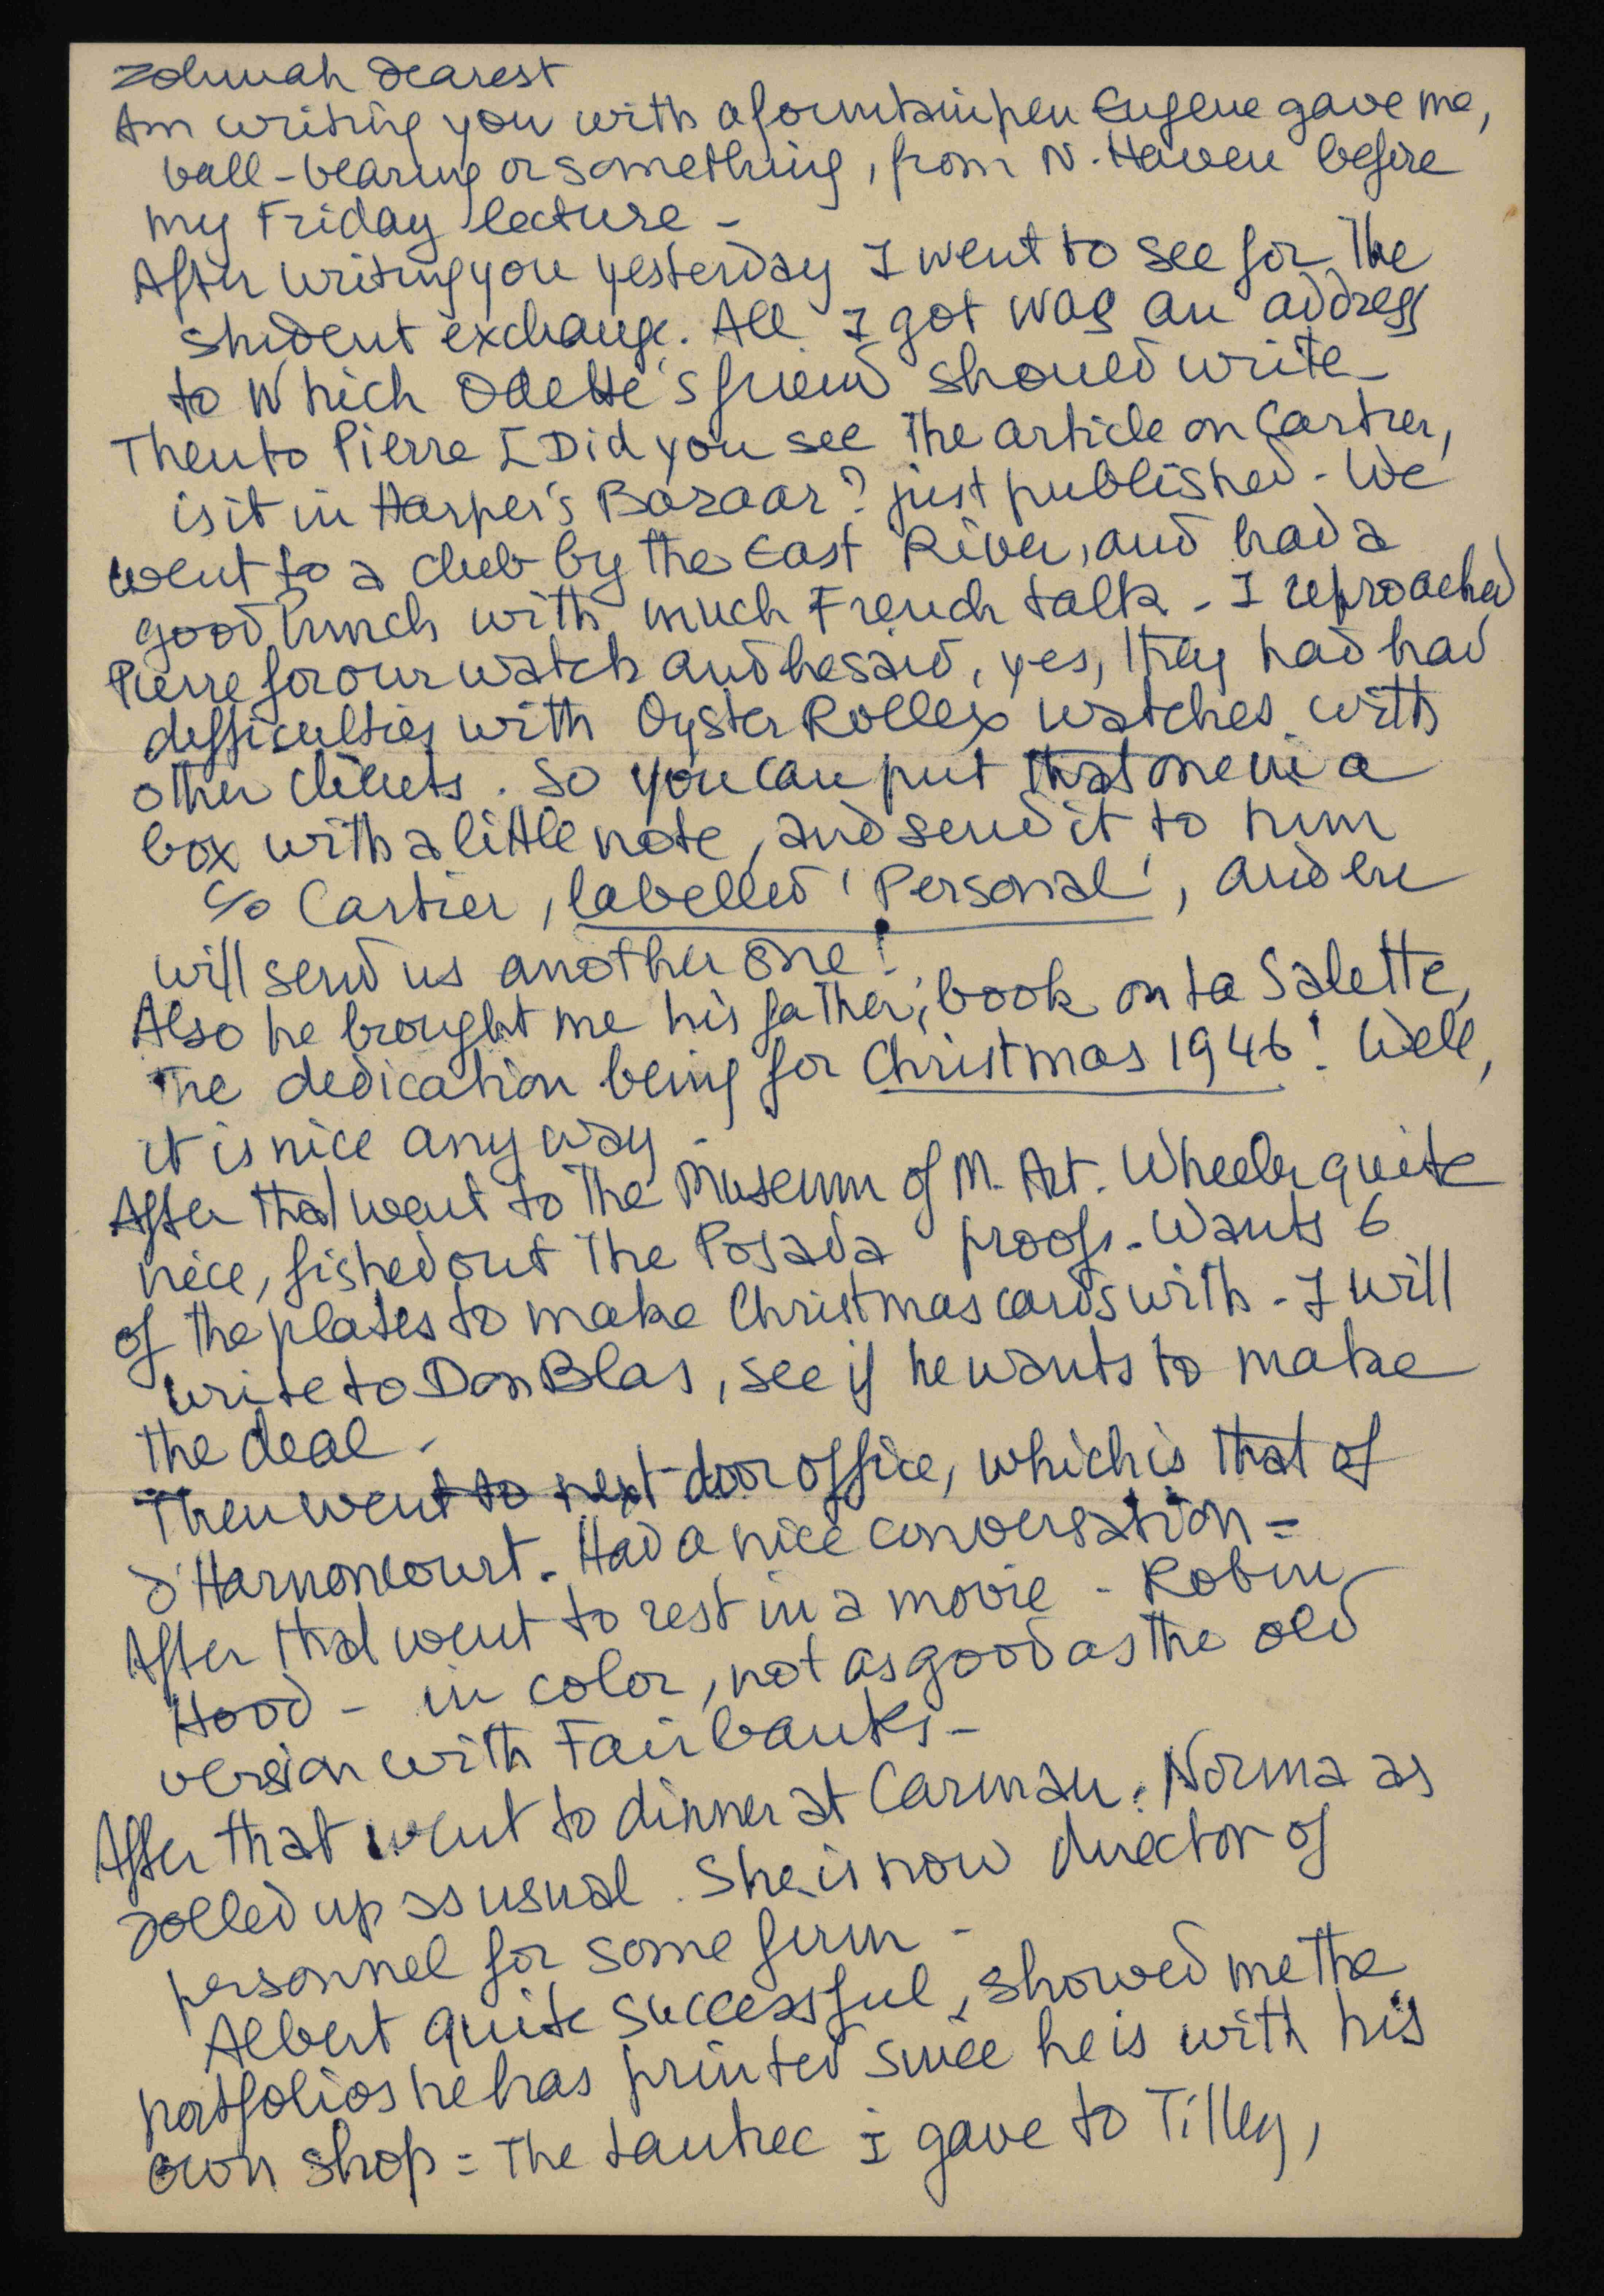 Zohmah dearest
Am writing you with a fountainpen Eugene gave me,
ball-bearing or something, from N. Haven before
my Friday lecture -
After writing you yesterday I went to see for the
student exchange. All I got was an address
to which Odette's friend should write -
Then to Pierre [Did you see the article on Cartier,
is it in Harper's Bazaar? just published - We
went to a club by the East River, and had a
good lunch with much French talk - I reproached
Pierre for our watch and he said, yes, they had had
difficulties with Oyster Rollex watches with
other clients. So you can put that one in a
box with a little note, and send it to him
c/o Cartier, labelled 'Personal', and he
will send us another one!
Also he brought me his father's book on La Salette,
the dedication being for Christmas 1946! Well,
it is nice anyway -
After that went to the Museum of M. Art. Wheeler quite
nice, fished out the Posada proofs - Wants 6
of the plates to make Christmas cards with - I will
write to Don Blas, see if he wants to make
the deal -
Then went to next-door office, which is that of
d'Harnoncourt. Had a nice conversation =
After that went to rest in a movie - Robin
Hood - in color, not as good as the old
version with Fairbanks -
After that went to dinner at Carman. Norma as
dolled up as usual. She is now director of
personnel for some firm -
Albert quite successful, showed me the
portfolios he has printed since he is with his
own shop = The Lautrec I gave to Tilley,